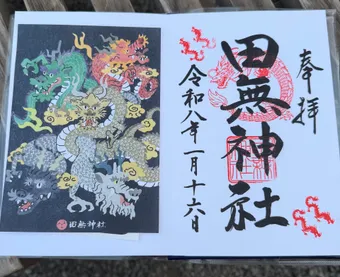 奉拝
田無神社
令和八年一月十六日
田無神社